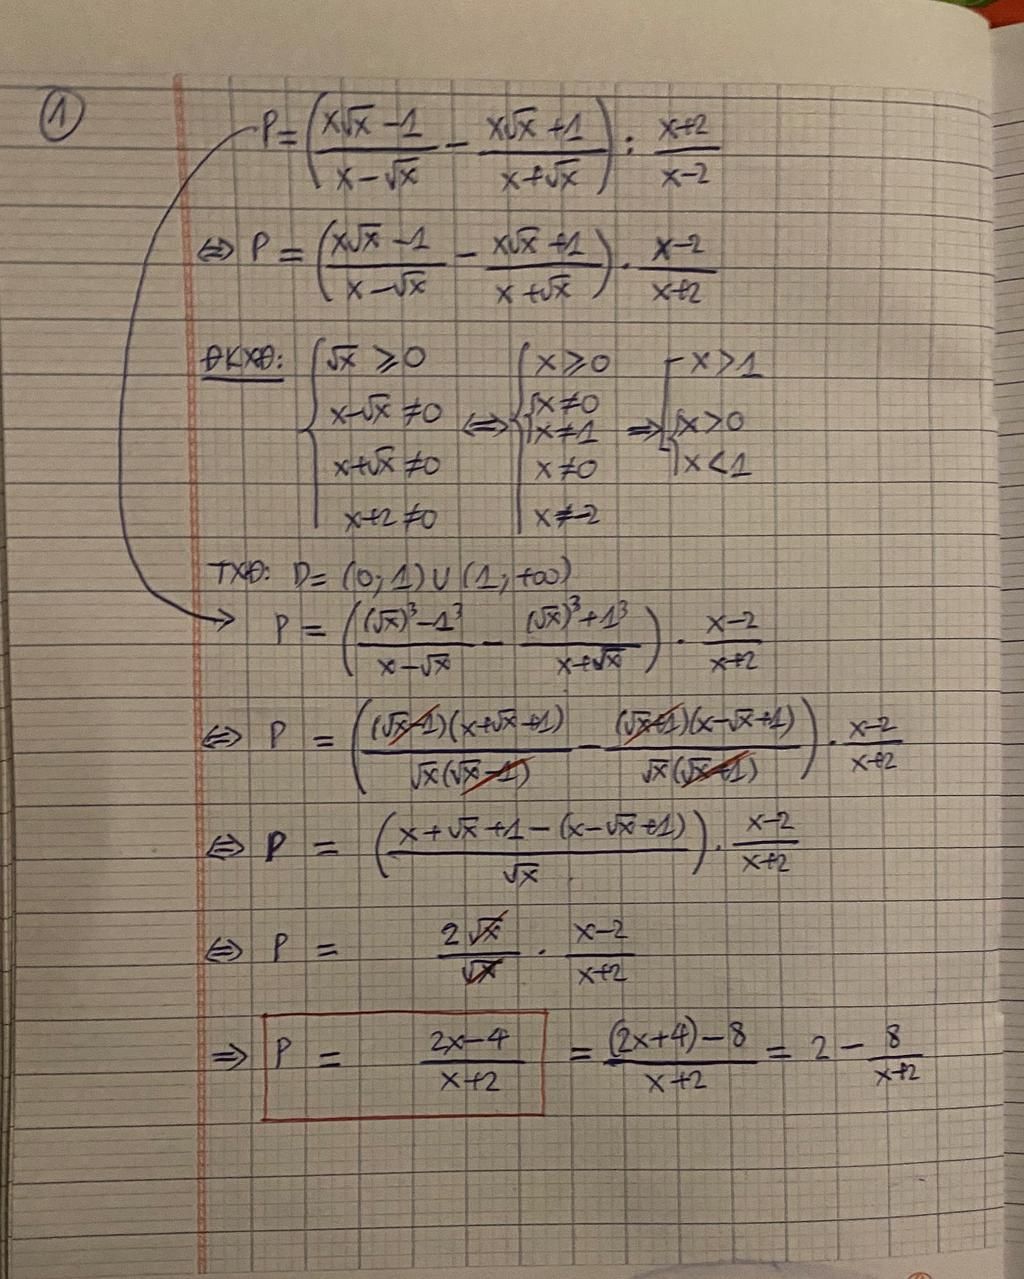 ①
P = ((x√x - 1)/(x - √x) - (x√x + 1)/(x + √x)) : (x+2)/(x-2)
⇔ P = ((x√x - 1)/(x - √x) - (x√x + 1)/(x + √x)) · (x-2)/(x+2)
ĐKXĐ: { √x ⩾ 0 ; x - √x ≠ 0 ; x + √x ≠ 0 ; x+2 ≠ 0 ⇔ { x ⩾ 0 ; { x ≠ 0 ; x ≠ 1 ; x ≠ 0 ; x ≠ -2 ⇒ [ x > 1 ; { x > 0 ; x < 1
TXĐ: D = (0; 1) ∪ (1; +∞)
P = (((√x)³ - 1³)/(x - √x) - ((√x)³ + 1³)/(x + √x)) · (x-2)/(x+2)
⇔ P = (((√x - 1)(x + √x + 1))/(√x(√x - 1)) - ((√x + 1)(x - √x + 1))/(√x(√x + 1))) · (x-2)/(x+2)
⇔ P = ((x + √x + 1 - (x - √x + 1))/√x) · (x-2)/(x+2)
⇔ P = 2√x/√x · (x-2)/(x+2)
⇒ P = (2x-4)/(x+2) = ((2x+4) - 8)/(x+2) = 2 - 8/(x+2)